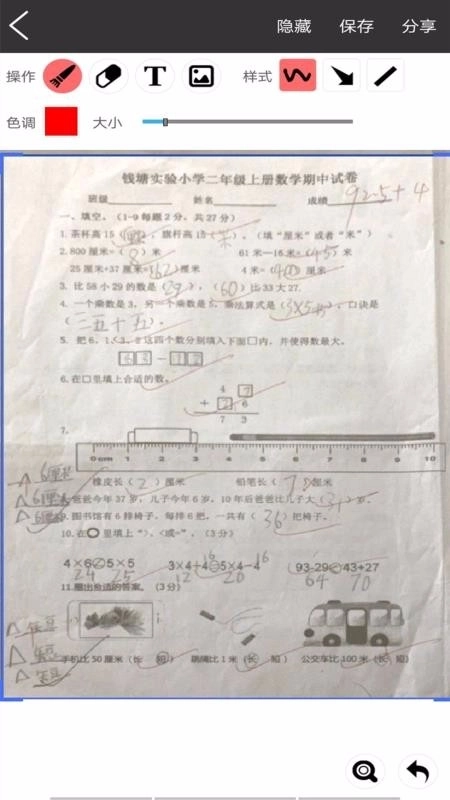 隐藏 保存 分享
操作 T 样式
色调 大小
钱塘实验小学二年级上册数学期中试卷
班级 姓名 成绩 92.5+4
一、填空。(1-9每题2分，共27分)
1.茶杯高15(厘米)，旗杆高15(米)。(填“厘米”或者“米”)
2.800厘米=(8)米 61米-16米=(45)米
25厘米+37厘米=(62)厘米 4米=(400)厘米
3.比58小29的数是(29)，(60)比33大27.
4.一个乘数是3，另一个乘数是5，乘法算式是(3×5)，口诀是
(三五十五)。
5.把6、1、3、2这四个数分别填入下面□内，并使得数最大。
6 3 － 1 2
6.在□里填上合适的数。
4 7
+ 2 6
7 3
7.
0cm 1 2 3 4 5 6 7 8 9 10
橡皮长(2)厘米 铅笔长(7)厘米
6厘米
爸爸今年37岁，儿子今年6岁，10年后爸爸比儿子大(31)岁。
9.图书馆有6排椅子，每排6把，一共有(36)把椅子。
10.在○里填上“>、<或=”。(3分)
4×6 5×5 3×4+4 5×4-4 93-29 43+27
24 25 12 16 20 16 64 70
11.圈出合适的答案。(3分)
手机比50厘米(长 短) 跳绳比1米(长 短) 公交车比100米(长 短)